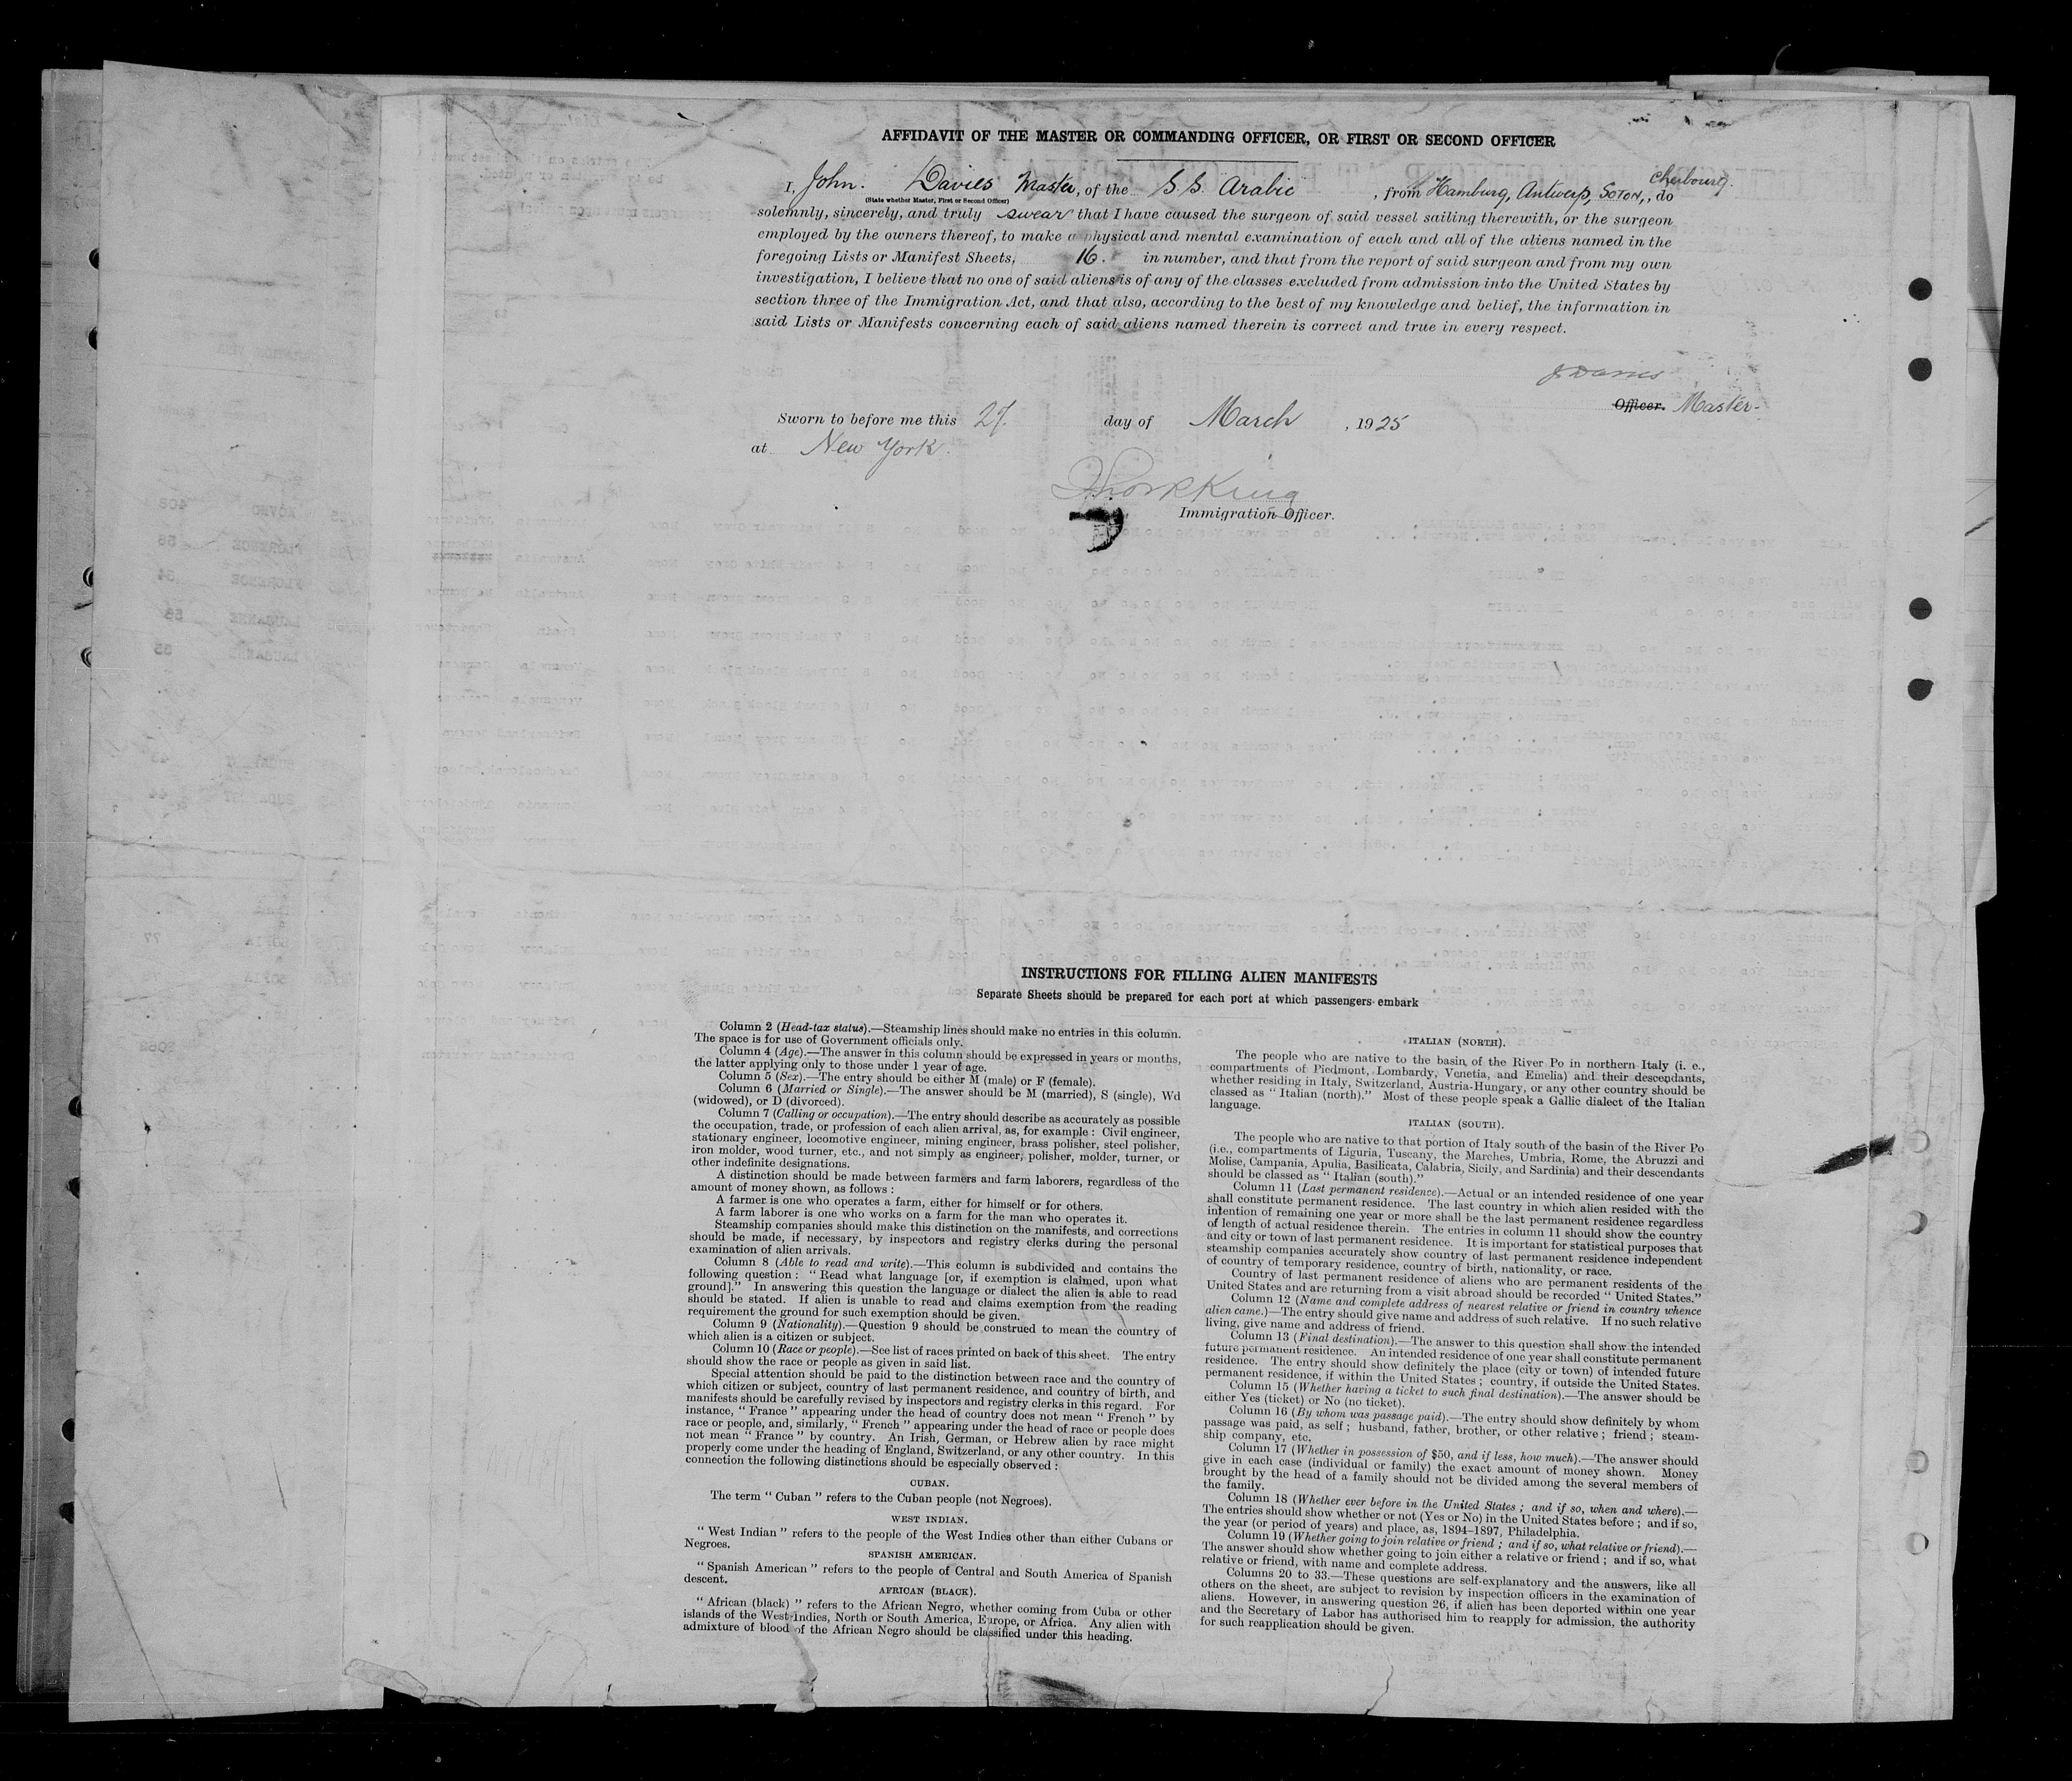 AFFIDAVIT OF THE MASTER OR COMMANDING OFFICER, OR FIRST OR SECOND OFFICER
I, John. Davies Master, of the S.S. Arabic, from Hamburg, Antwerp, SOTON, Cherbourg. , do
(State whether Master, First or Second Officer)
solemnly, sincerely, and truly swear that I have caused the surgeon of said vessel sailing therewith, or the surgeon
employed by the owners thereof, to make a physical and mental examination of each and all of the aliens named in the
foregoing Lists or Manifest Sheets, 16. in number, and that from the report of said surgeon and from my own
investigation, I believe that no one of said aliens is of any of the classes excluded from admission into the United States by
section three of the Immigration Act, and that also, according to the best of my knowledge and belief, the information in
said Lists or Manifests concerning each of said aliens named therein is correct and true in every respect.
J Davies
Officer. Master-
Sworn to before me this 27. day of March , 1925
at New York.
King
Immigration Officer.
INSTRUCTIONS FOR FILLING ALIEN MANIFESTS
Separate Sheets should be prepared for each port at which passengers embark
Column 2 (Head-tax status).—Steamship lines should make no entries in this column.
The space is for use of Government officials only.
Column 4 (Age).—The answer in this column should be expressed in years or months,
the latter applying only to those under 1 year of age.
Column 5 (Sex).—The entry should be either M (male) or F (female).
Column 6 (Married or Single).—The answer should be M (married), S (single), Wd
(widowed), or D (divorced).
Column 7 (Calling or occupation).—The entry should describe as accurately as possible
the occupation, trade, or profession of each alien arrival, as, for example : Civil engineer,
stationary engineer, locomotive engineer, mining engineer, brass polisher, steel polisher,
iron molder, wood turner, etc., and not simply as engineer, polisher, molder, turner, or
other indefinite designations.
A distinction should be made between farmers and farm laborers, regardless of the
amount of money shown, as follows :
A farmer is one who operates a farm, either for himself or for others.
A farm laborer is one who works on a farm for the man who operates it.
Steamship companies should make this distinction on the manifests, and corrections
should be made, if necessary, by inspectors and registry clerks during the personal
examination of alien arrivals.
Column 8 (Able to read and write).—This column is subdivided and contains the
following question : " Read what language [or, if exemption is claimed, upon what
ground]." In answering this question the language or dialect the alien is able to read
should be stated. If alien is unable to read and claims exemption from the reading
requirement the ground for such exemption should be given.
Column 9 (Nationality).—Question 9 should be construed to mean the country of
which alien is a citizen or subject.
Column 10 (Race or people).—See list of races printed on back of this sheet. The entry
should show the race or people as given in said list.
Special attention should be paid to the distinction between race and the country of
which citizen or subject, country of last permanent residence, and country of birth, and
manifests should be carefully revised by inspectors and registry clerks in this regard. For
instance, " France " appearing under the head of country does not mean " French " by
race or people, and, similarly, " French " appearing under the head of race or people does
not mean " France " by country. An Irish, German, or Hebrew alien by race might
properly come under the heading of England, Switzerland, or any other country. In this
connection the following distinctions should be especially observed :
CUBAN.
The term " Cuban " refers to the Cuban people (not Negroes).
WEST INDIAN.
" West Indian " refers to the people of the West Indies other than either Cubans or
Negroes.
SPANISH AMERICAN.
" Spanish American " refers to the people of Central and South America of Spanish
descent.
AFRICAN (BLACK).
" African (black) " refers to the African Negro, whether coming from Cuba or other
islands of the West Indies, North or South America, Europe, or Africa. Any alien with
admixture of blood of the African Negro should be classified under this heading.
ITALIAN (NORTH).
The people who are native to the basin of the River Po in northern Italy (i. e.,
compartments of Piedmont, Lombardy, Venetia, and Emelia) and their descendants,
whether residing in Italy, Switzerland, Austria-Hungary, or any other country should be
classed as " Italian (north)." Most of these people speak a Gallic dialect of the Italian
language.
ITALIAN (SOUTH).
The people who are native to that portion of Italy south of the basin of the River Po
(i.e., compartments of Liguria, Tuscany, the Marches, Umbria, Rome, the Abruzzi and
Molise, Campania, Apulia, Basilicata, Calabria, Sicily, and Sardinia) and their descendants
should be classed as " Italian (south)."
Column 11 (Last permanent residence).—Actual or an intended residence of one year
shall constitute permanent residence. The last country in which alien resided with the
intention of remaining one year or more shall be the last permanent residence regardless
of length of actual residence therein. The entries in column 11 should show the country
and city or town of last permanent residence. It is important for statistical purposes that
steamship companies accurately show country of last permanent residence independent
of country of temporary residence, country of birth, nationality, or race.
Country of last permanent residence of aliens who are permanent residents of the
United States and are returning from a visit abroad should be recorded " United States."
Column 12 (Name and complete address of nearest relative or friend in country whence
alien came.)—The entry should give name and address of such relative. If no such relative
living, give name and address of friend.
Column 13 (Final destination).—The answer to this question shall show the intended
future permanent residence. An intended residence of one year shall constitute permanent
residence. The entry should show definitely the place (city or town) of intended future
permanent residence, if within the United States ; country, if outside the United States.
Column 15 (Whether having a ticket to such final destination).—The answer should be
either Yes (ticket) or No (no ticket).
Column 16 (By whom was passage paid).—The entry should show definitely by whom
passage was paid, as self ; husband, father, brother, or other relative ; friend ; steam-
ship company, etc.
Column 17 (Whether in possession of $50, and if less, how much).—The answer should
give in each case (individual or family) the exact amount of money shown. Money
brought by the head of a family should not be divided among the several members of
the family.
Column 18 (Whether ever before in the United States ; and if so, when and where).—
The entries should show whether or not (Yes or No) in the United States before ; and if so,
the year (or period of years) and place, as, 1894–1897, Philadelphia.
Column 19 (Whether going to join relative or friend ; and if so, what relative or friend).—
The answer should show whether going to join either a relative or friend ; and if so, what
relative or friend, with name and complete address.
Columns 20 to 33.—These questions are self-explanatory and the answers, like all
others on the sheet, are subject to revision by inspection officers in the examination of
aliens. However, in answering question 26, if alien has been deported within one year
and the Secretary of Labor has authorised him to reapply for admission, the authority
for such reapplication should be given.